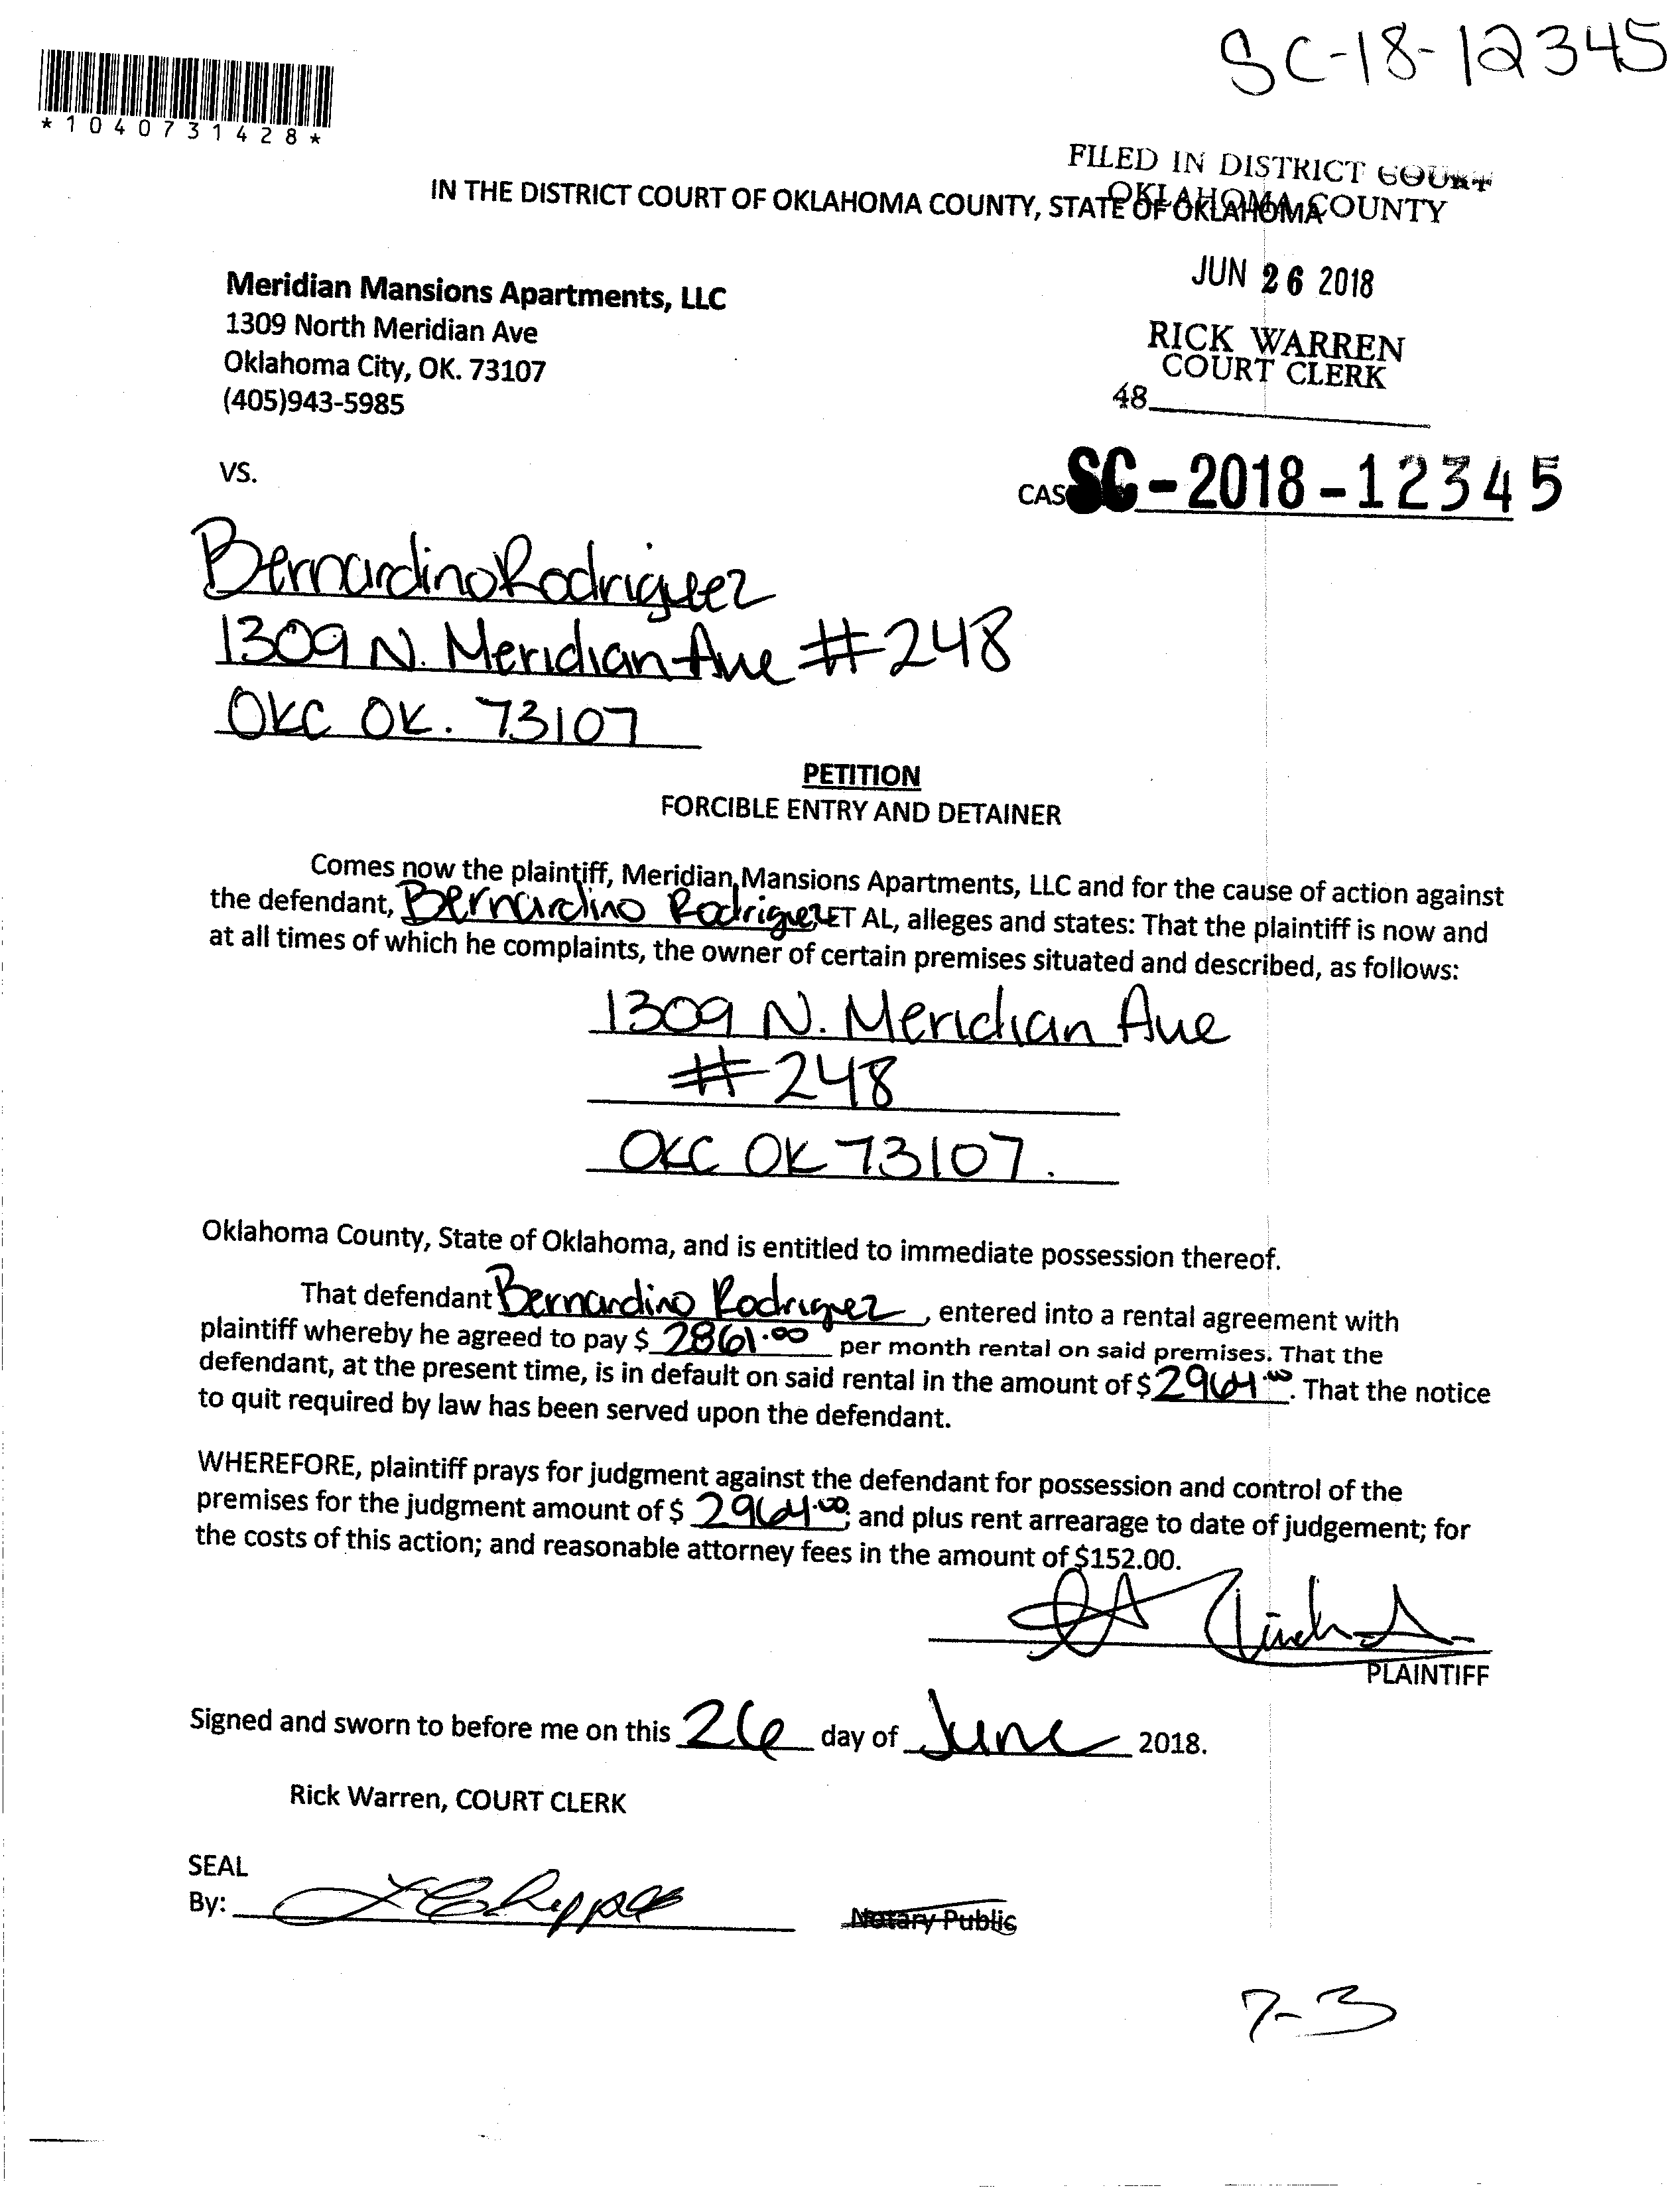 SC-18-12345
*1040731428*
FILED IN DISTRICT COURT
OKLAHOMA COUNTY
IN THE DISTRICT COURT OF OKLAHOMA COUNTY, STATE OF OKLAHOMA
JUN 26 2018
RICK WARREN
COURT CLERK
48
Meridian Mansions Apartments, LLC
1309 North Meridian Ave
Oklahoma City, OK. 73107
(405)943-5985
VS.
CAS SC-2018-12345
Bernardino Rodriguez
1309 N. Meridian Ave #248
OKC OK. 73107
PETITION
FORCIBLE ENTRY AND DETAINER
Comes now the plaintiff, Meridian Mansions Apartments, LLC and for the cause of action against
the defendant, Bernardino Rodriguez ET AL, alleges and states: That the plaintiff is now and
at all times of which he complaints, the owner of certain premises situated and described, as follows:
1309 N. Meridian Ave
#248
OKC OK 73107.
Oklahoma County, State of Oklahoma, and is entitled to immediate possession thereof.
That defendant Bernardino Rodriguez, entered into a rental agreement with
plaintiff whereby he agreed to pay $ 2861.00 per month rental on said premises. That the
defendant, at the present time, is in default on said rental in the amount of $2964.00. That the notice
to quit required by law has been served upon the defendant.
WHEREFORE, plaintiff prays for judgment against the defendant for possession and control of the
premises for the judgment amount of $ 2964.00; and plus rent arrearage to date of judgement; for
the costs of this action; and reasonable attorney fees in the amount of $152.00.
PLAINTIFF
Signed and sworn to before me on this 26 day of June 2018.
Rick Warren, COURT CLERK
SEAL
By:
Notary Public
7-3